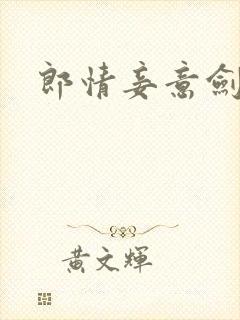 郎情妾意劍
黃文輝